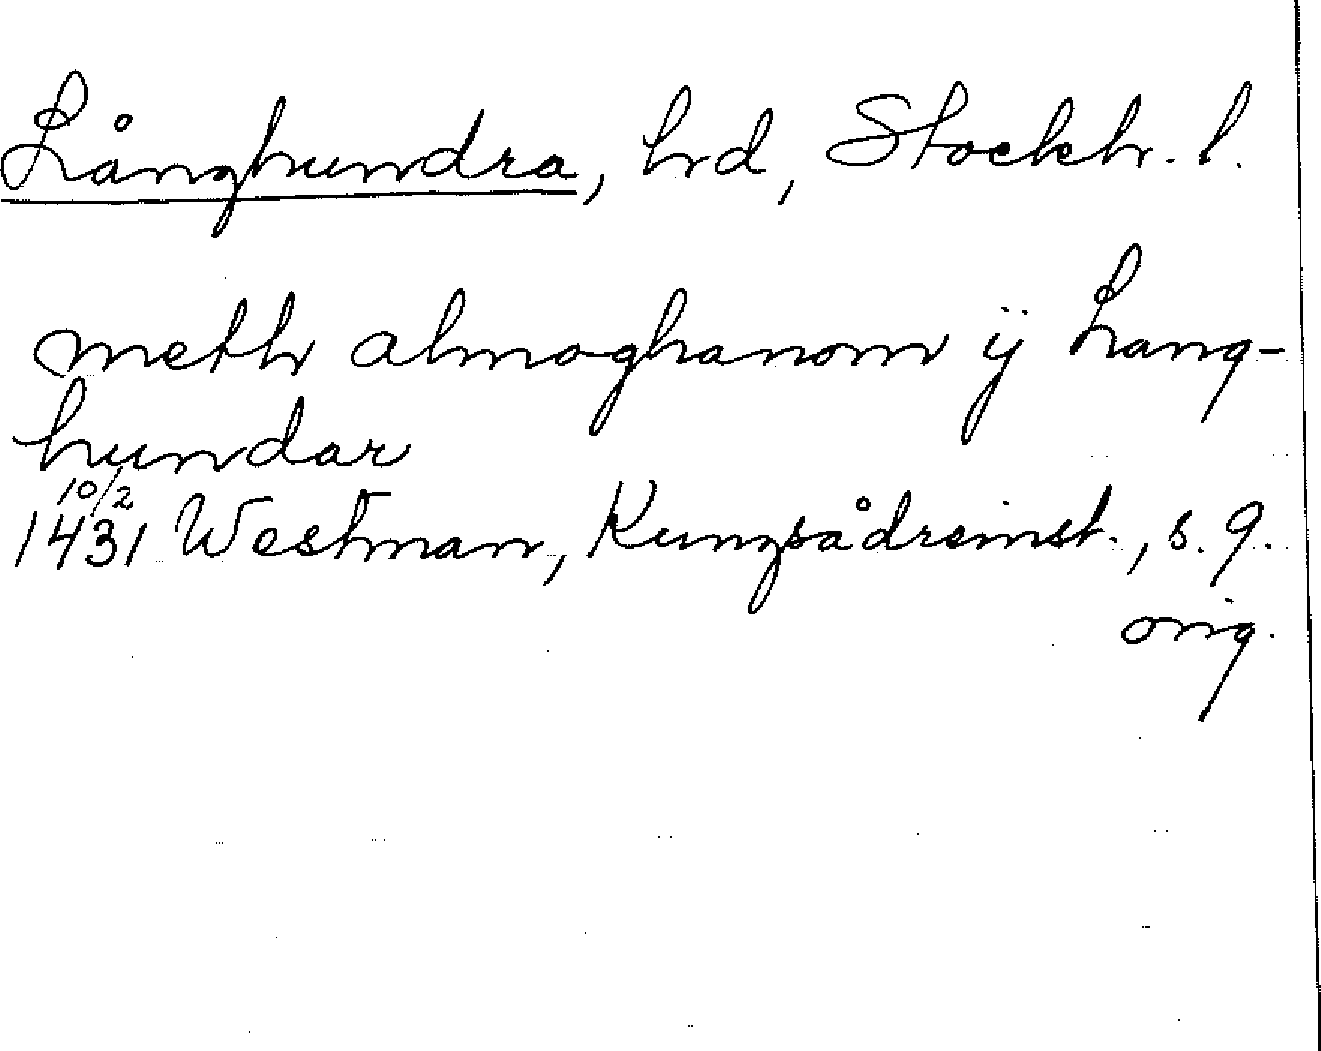 Långhundra, hrd, Stockh. l.
meth almoghanom ÿ Lang-
hundar
10/2
1431 Westman, Kungsådreinst., s. 9.
orig.